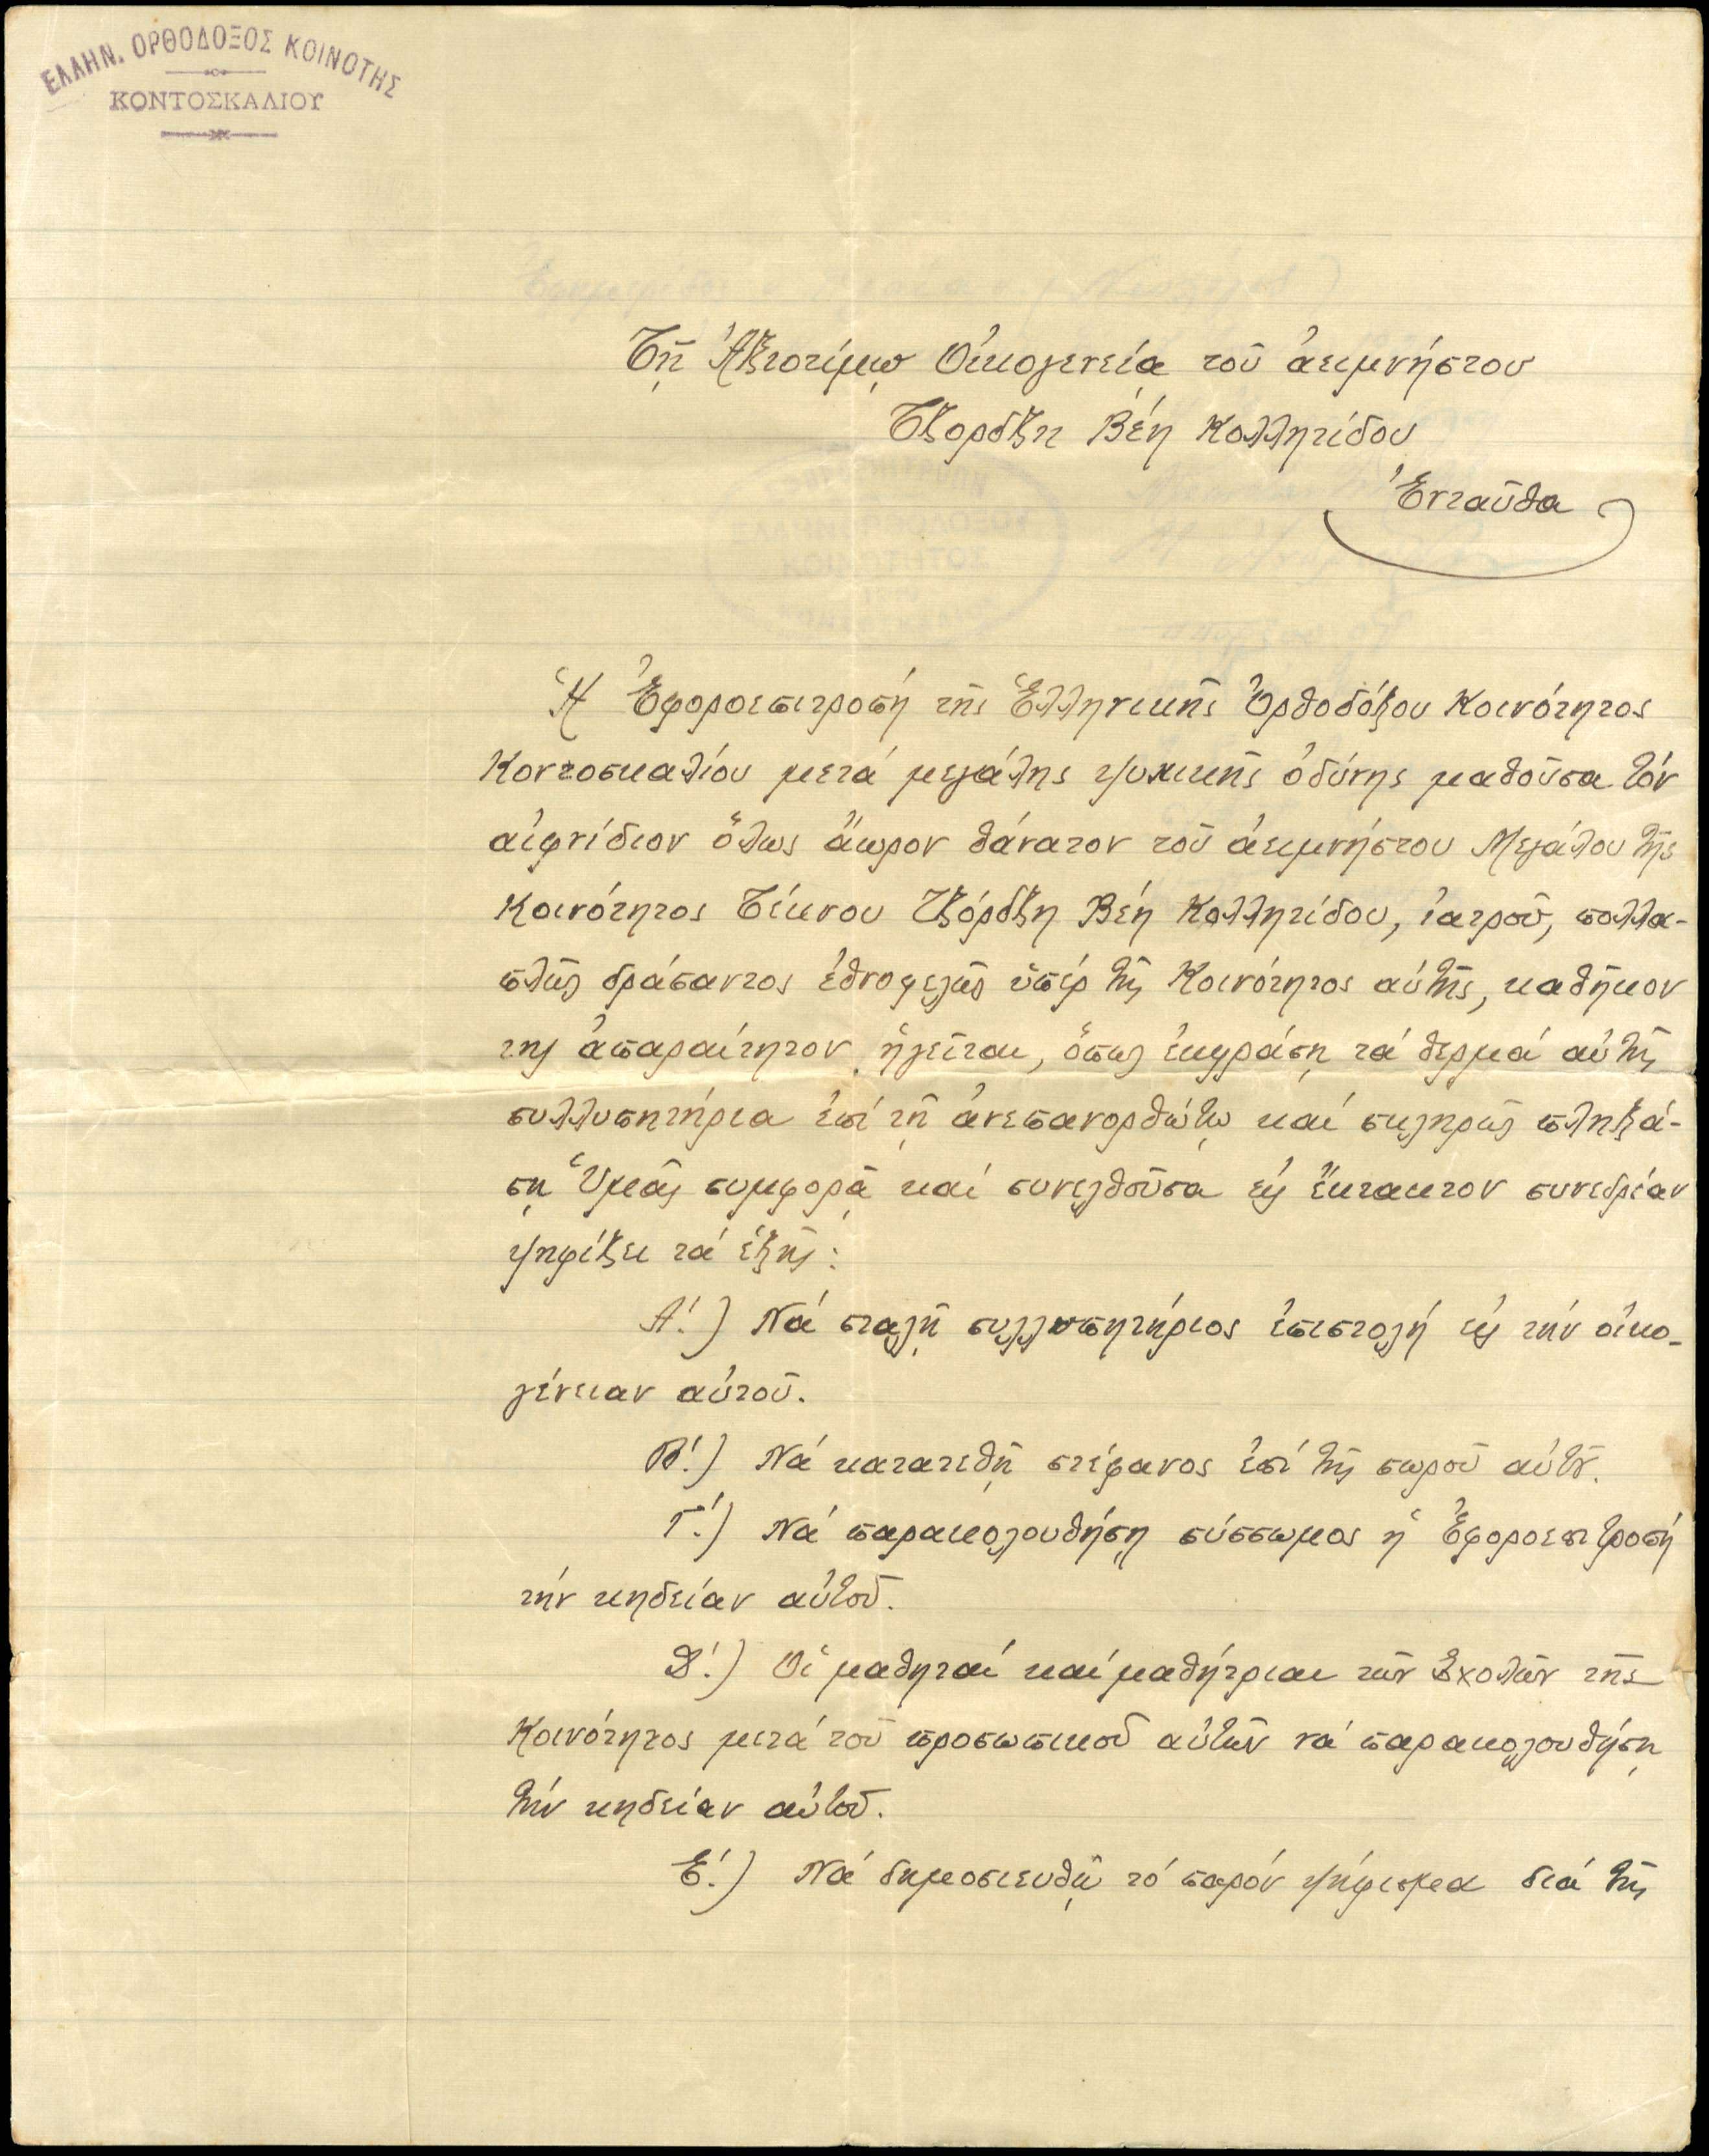 ΕΛΛΗΝ. ΟΡΘΟΔΟΞΟΣ ΚΟΙΝΟΤΗΣ
ΚΟΝΤΟΣΚΑΛΙΟΥ
Τῇ Ἀξιοτίμῳ Οἰκογενείᾳ τοῦ ἀειμνήστου
Τζορδζη Βέη Κολλητίδου
Ἐνταῦθα
Ἡ Ἐφοροεπιτροπή τῆς Ἑλληνικῆς Ὀρθοδόξου Κοινότητος
Κοντοσκαλίου μετά μεγάλης ψυχικῆς ὀδύνης μαθοῦσα τόν
αἰφνίδιον ὅλως ἄωρον θάνατον τοῦ ἀειμνήστου Μεγάλου τῆς
Κοινότητος Τέκνου Τζόρδζη Βέη Κολλητίδου, ἰατροῦ, πολλα-
πλῶς δράσαντος ἐθνοφελῶς ὑπέρ τῆς Κοινότητος αὐτῆς, καθῆκον
της ἀπαραίτητον ἡγεῖται, ὅπως ἐκφράσῃ τά θερμά αὐτῆς
συλλυπητήρια ἐπί τῇ ἀνεπανορθώτῳ καί σκληρῶς πληξά-
σῃ Ὑμᾶς συμφορᾷ καί συνελθοῦσα εἰς ἔκτακτον συνεδρίαν
ψηφίζει τά ἑξῆς:
Α΄.) Νά σταλῇ συλλυπητήριος ἐπιστολή εἰς τήν οἰκο-
γένειαν αὐτοῦ.
Β΄.) Νά κατατεθῇ στέφανος ἐπί τῆς σωροῦ αὐτοῦ.
Γ΄.) Νά παρακολουθήσῃ σύσσωμος ἡ Ἐφοροεπιτροπή
τήν κηδείαν αὐτοῦ.
Δ΄.) Οἱ μαθηταί καί μαθήτριαι τῶν Σχολῶν τῆς
Κοινότητος μετά τοῦ προσωπικοῦ αὐτῶν νά παρακολουθήσῃ
τήν κηδείαν αὐτοῦ.
Ε΄.) Νά δημοσιευθῇ τό παρόν ψήφισμα διά τῆς